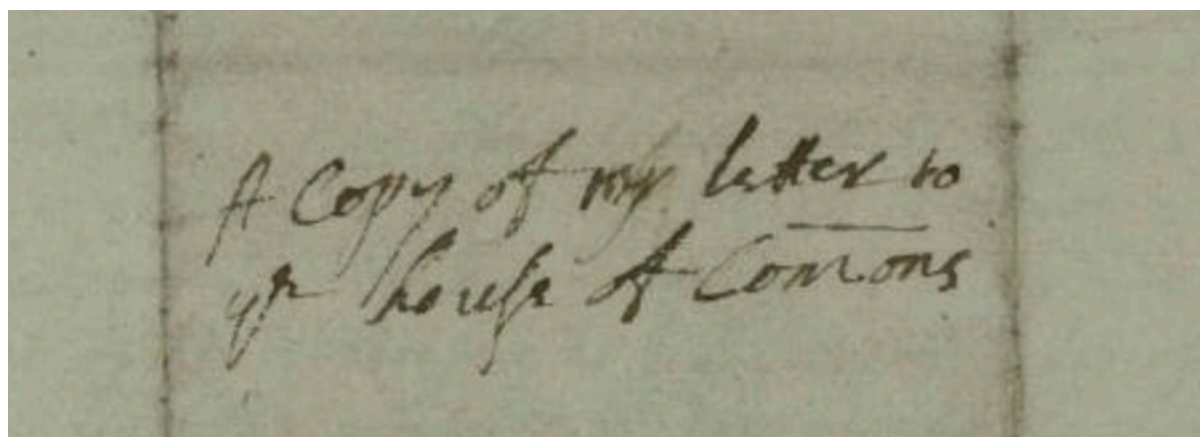 A Copy of my letter to
ye house of Com̄ons